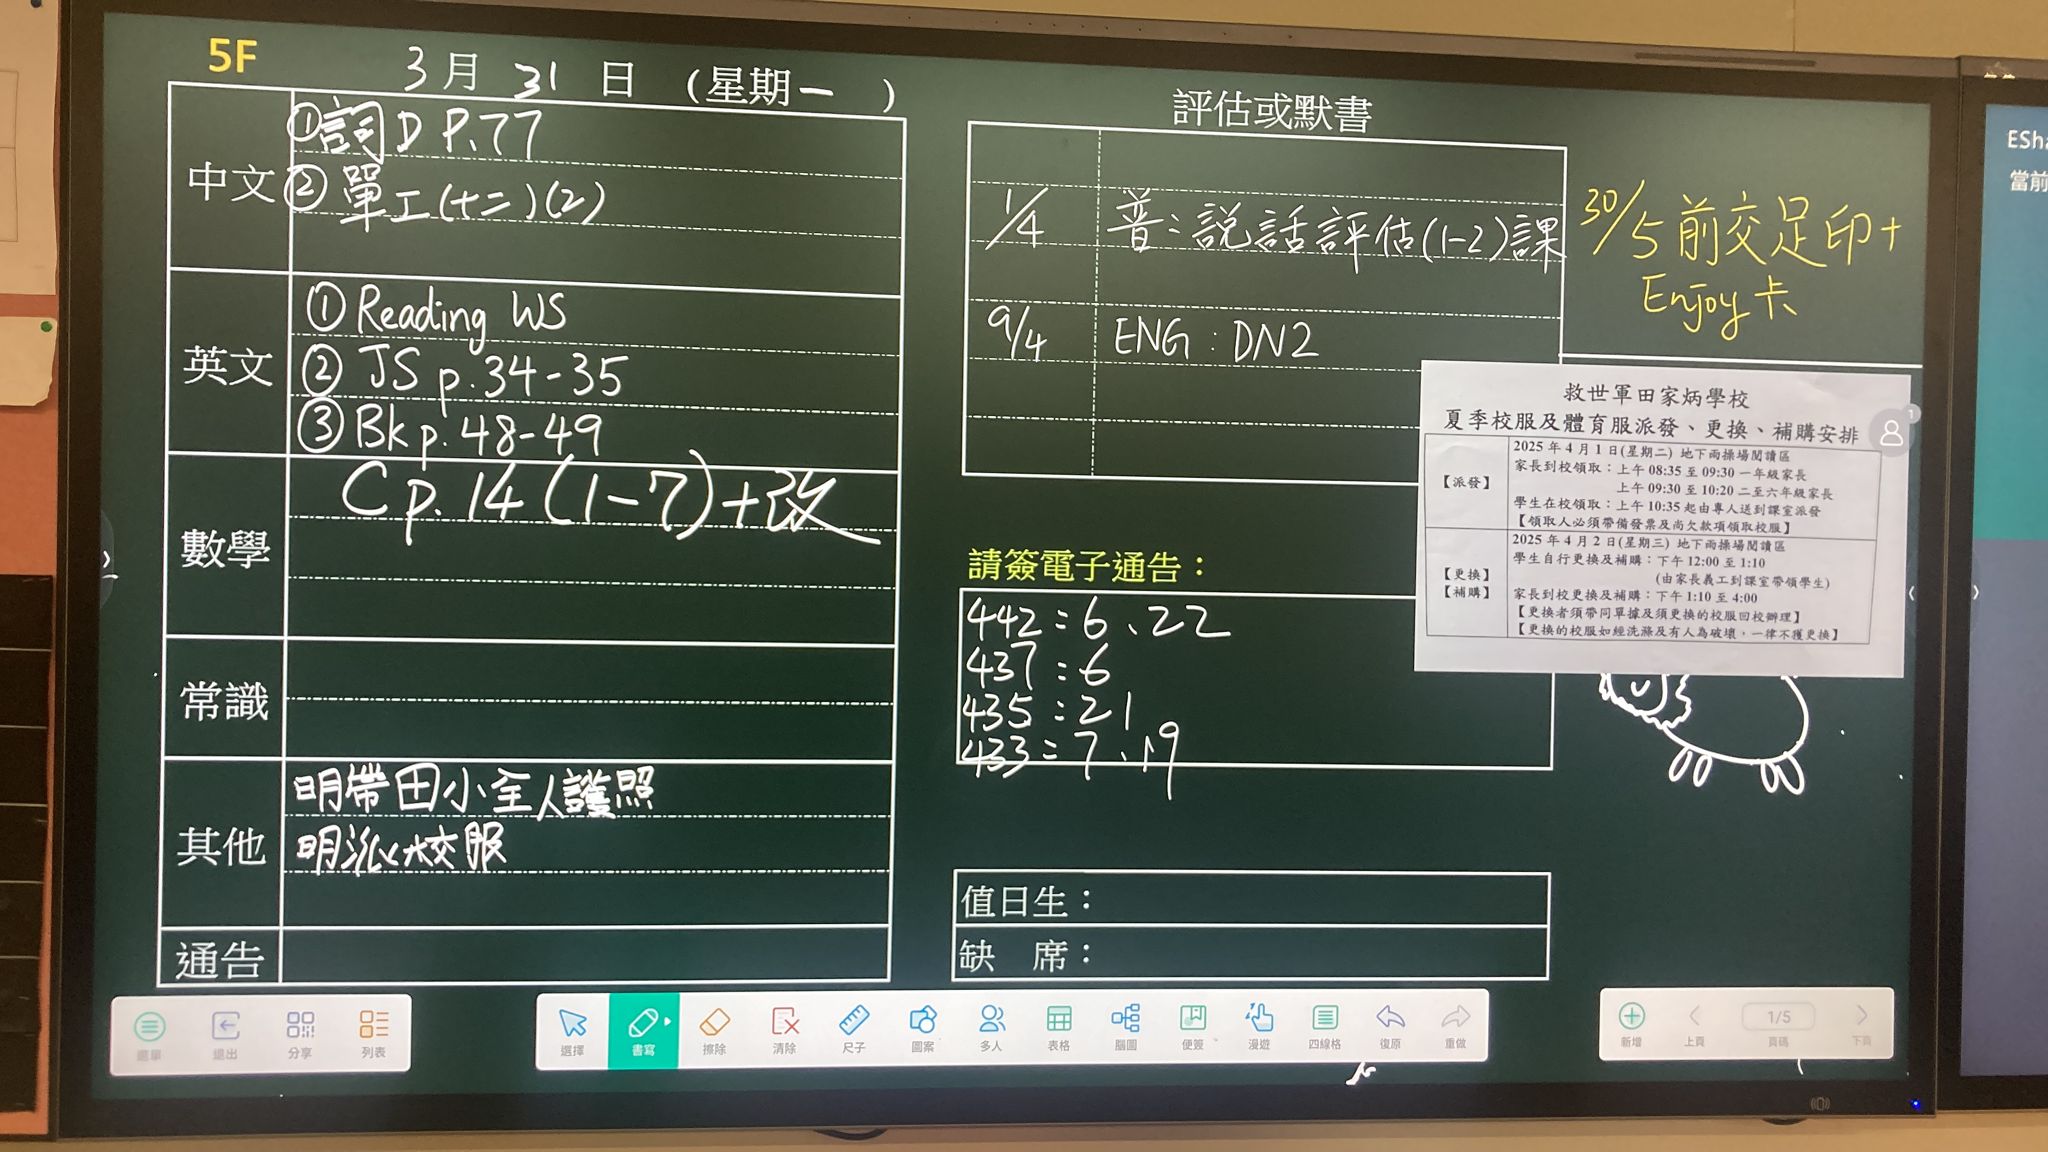 5F
3月31日 (星期一)
中文
①詞D P.77
②單工(十二)(2)
英文
①Reading WS
②JS p.34-35
③Bk p.48-49
數學
C p.14 (1-7)+改
常識
其他
明帶田小主人護照
明派校服
通告
評估或默書
1/4 普:說話評估(1-2)課
9/4 ENG:DN2
30/5前交足印+
Enjoy卡
請簽電子通告:
442:6、22
437:6
435:21
433:7、19
值日生:
缺 席:
救世軍田家炳學校
夏季校服及體育服派發、更換、補購安排
【派發】
2025年4月1日(星期二) 地下雨操場閱讀區
家長到校領取:上午08:35至09:30 一年級家長
上午09:30至10:20 二至六年級家長
學生在校領取:上午10:35起由專人送到課室派發
【領取人必須帶備發票及尚欠款項領取校服】
【更換】
【補購】
2025年4月2日(星期三) 地下雨操場閱讀區
學生自行更換及補購:下午12:00至1:10
(由家長義工到課室帶領學生)
家長到校更換及補購:下午1:10至4:00
【更換者須帶同單據及須更換的校服回校辦理】
【更換的校服如經洗滌及有人為破壞,一律不獲更換】
1
ESha
當前
選單 退出 分享 列表
選擇 書寫 擦除 清除 尺子 圖案 多人 表格 腦圖 便簽 漫遊 四線格 復原 重做
1/5
新增 上頁 頁碼 下頁